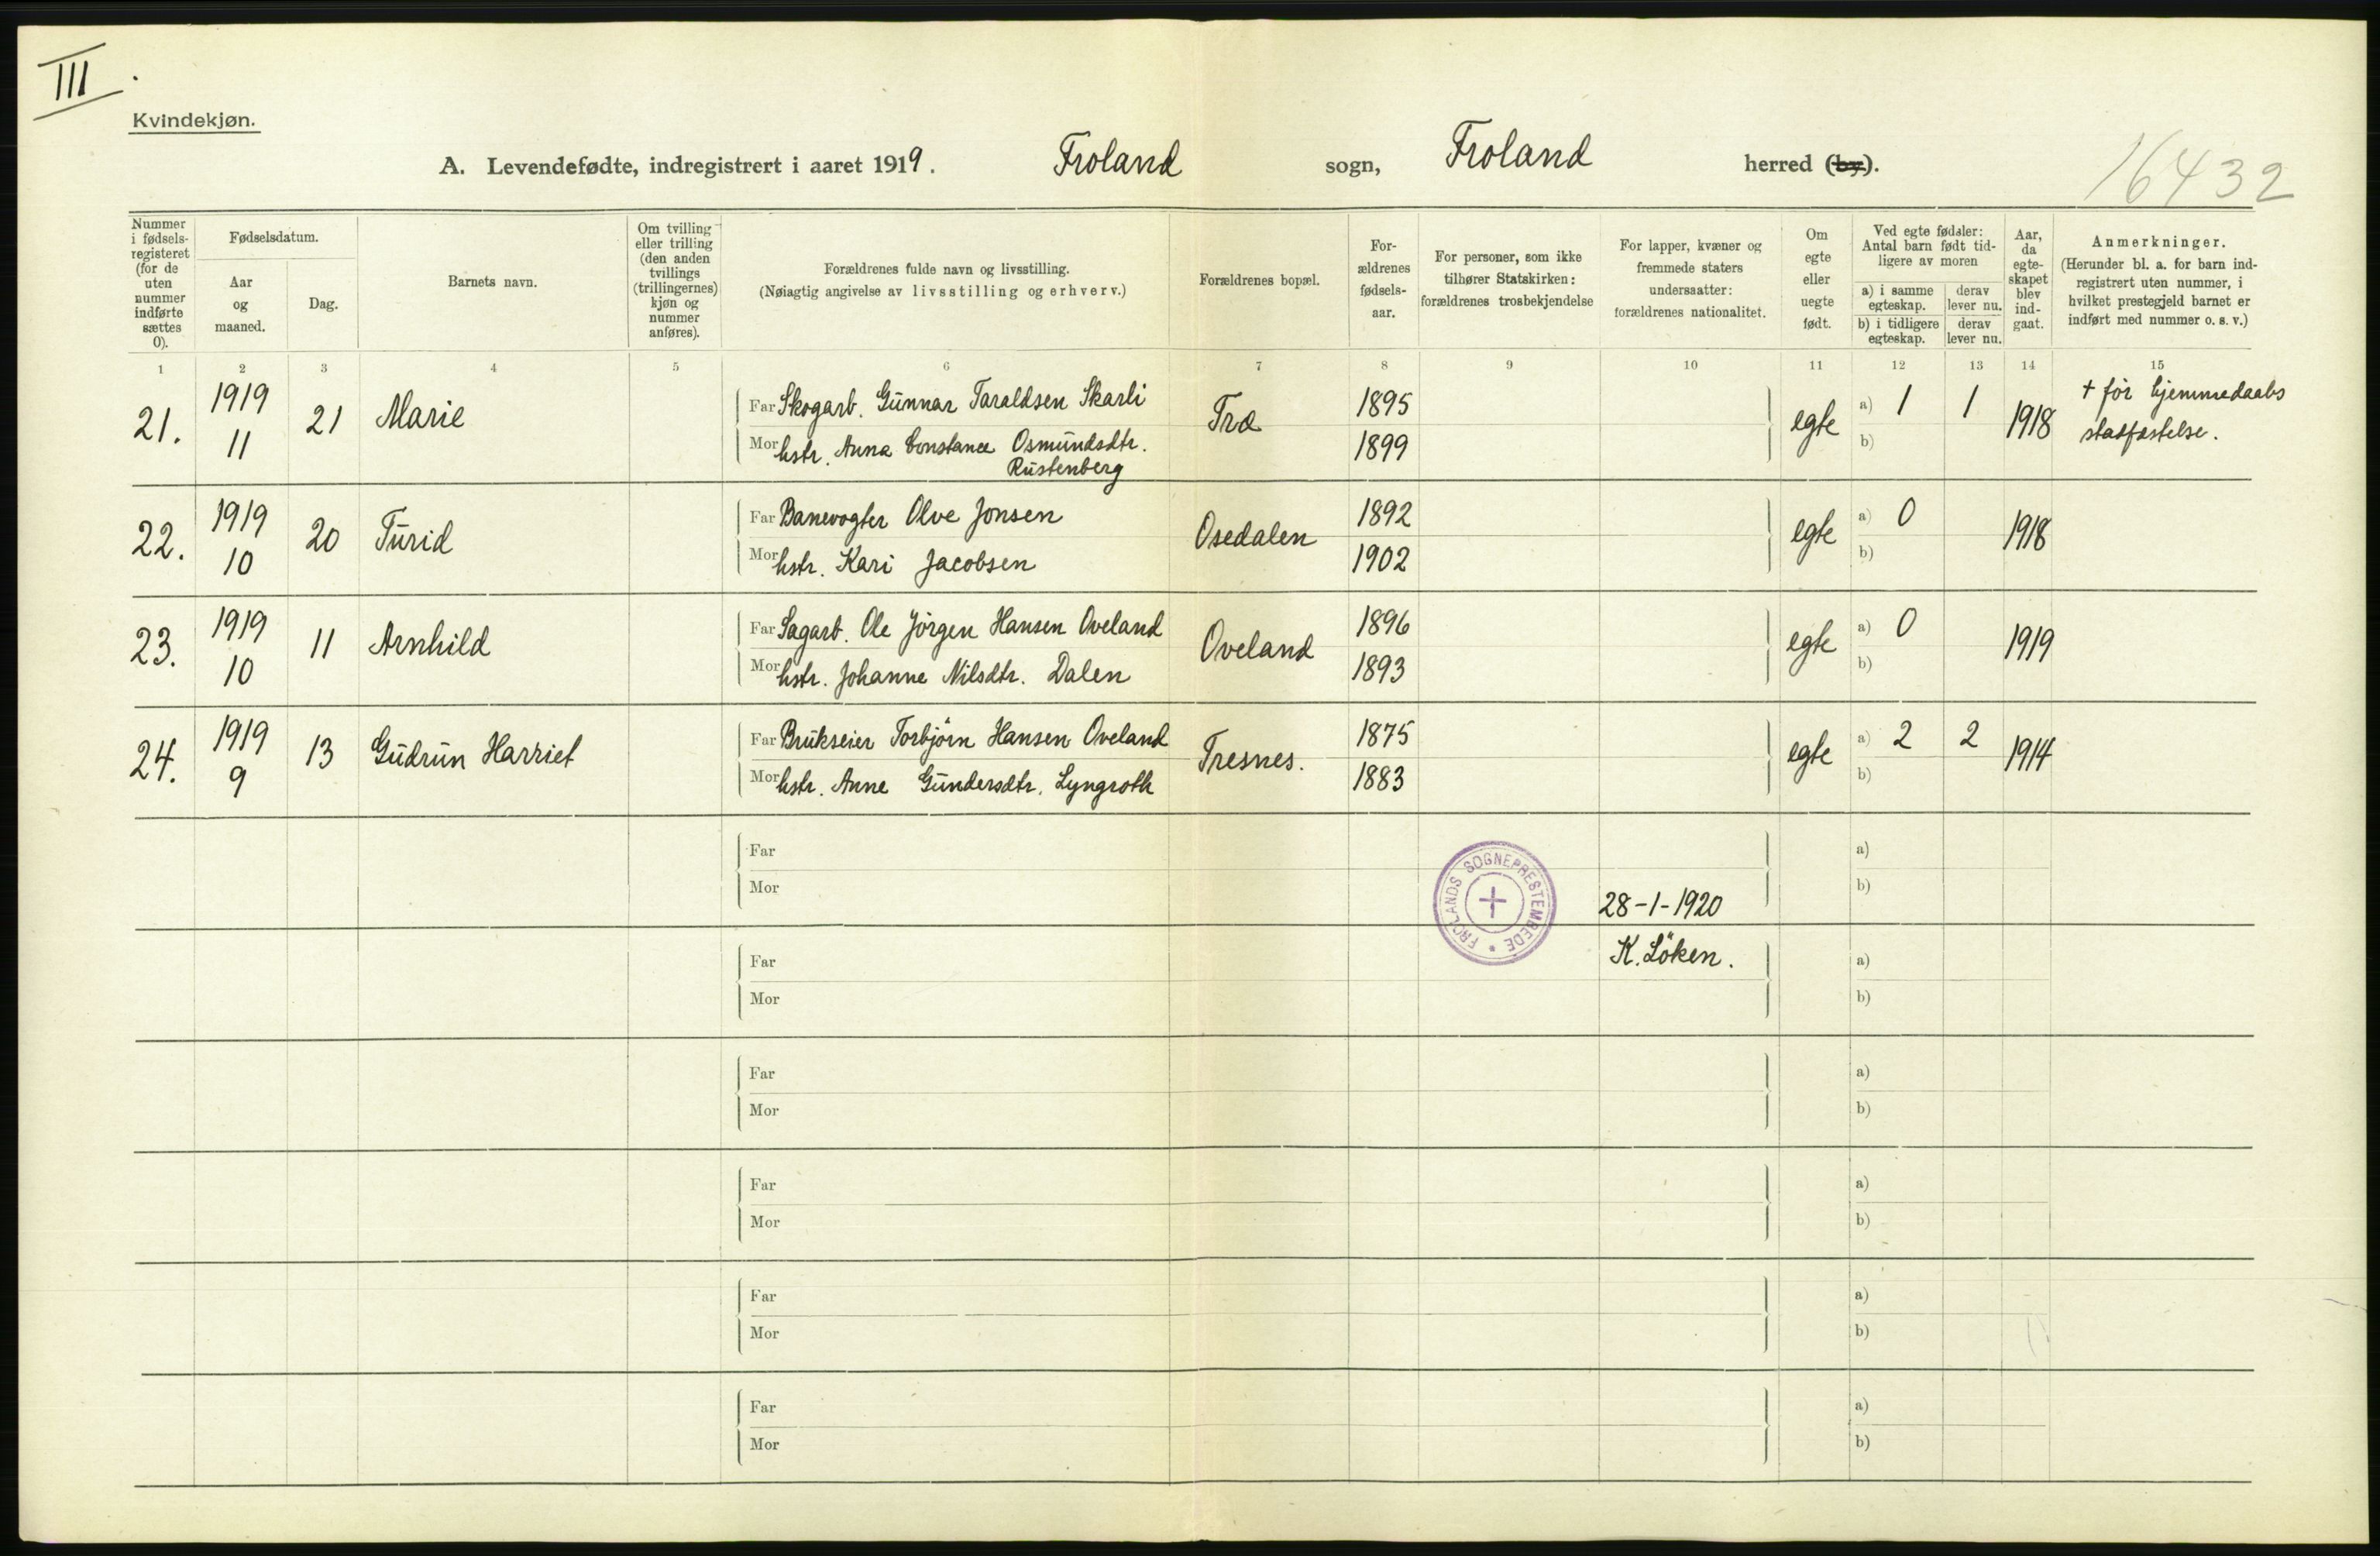 III.
Kvindekjøn.
A. Levendefødte, indregistrert i aaret 1919. Froland sogn, Froland herred (by).
16432
Nummer i fødsels-registeret (for de uten nummer indførte sættes 0).
Fødselsdatum.
Aar og maaned.
Dag.
Barnets navn.
Om tvilling eller trilling (den anden tvillings (trillingernes) kjøn og nummer anføres).
Forældrenes fulde navn og livsstilling.
(Nøiagtig angivelse av livsstilling og erhverv.)
Forældrenes bopæl.
For-ældrenes fødsels-aar.
For personer, som ikke tilhører Statskirken: forældrenes trosbekjendelse
For lapper, kvæner og fremmede staters undersaatter: forældrenes nationalitet.
Om egte eller uegte født.
Ved egte fødsler: Antal barn født tid-ligere av moren
a) i samme egteskap. derav lever nu.
b) i tidligere egteskap. derav lever nu.
Aar, da egte-skapet blev ind-gaat.
Anmerkninger.
(Herunder bl. a. for barn ind-registrert uten nummer, i hvilket prestegjeld barnet er indført med nummer o. s. v.)
1 2 3 4 5 6 7 8 9 10 11 12 13 14 15
21. 1919 11 21 Marie
Far Skogarb. Gunnar Taraldsen Skarli
Mor hstr. Anna Constance Osmundsdtr. Rustenberg
Træ 1895 1899 egte a) 1 1 b) 1918
+ før hjemmedaabs stadfæstelse.
22. 1919 10 20 Turid
Far Banevogter Olve Jonsen
Mor hstr. Kari Jacobsen
Osedalen 1892 1902 egte a) 0 b) 1918
23. 1919 10 11 Arnhild
Far Sagarb. Ole Jörgen Hansen Oveland
Mor hstr. Johanne Nilsdtr. Dalen
Oveland 1896 1893 egte a) 0 b) 1919
24. 1919 9 13 Gudrun Harriet
Far Brukseier Torbjörn Hansen Oveland
Mor hstr. Anne Gundersdtr. Lyngroth
Tresnes. 1875 1883 egte a) 2 2 b) 1914
Far a)
Mor b)
FROLANDS SOGNEPRESTEMBEDE
28-1-1920
K. Löken.
Far a)
Mor b)
Far a)
Mor b)
Far a)
Mor b)
Far a)
Mor b)
Far a)
Mor b)